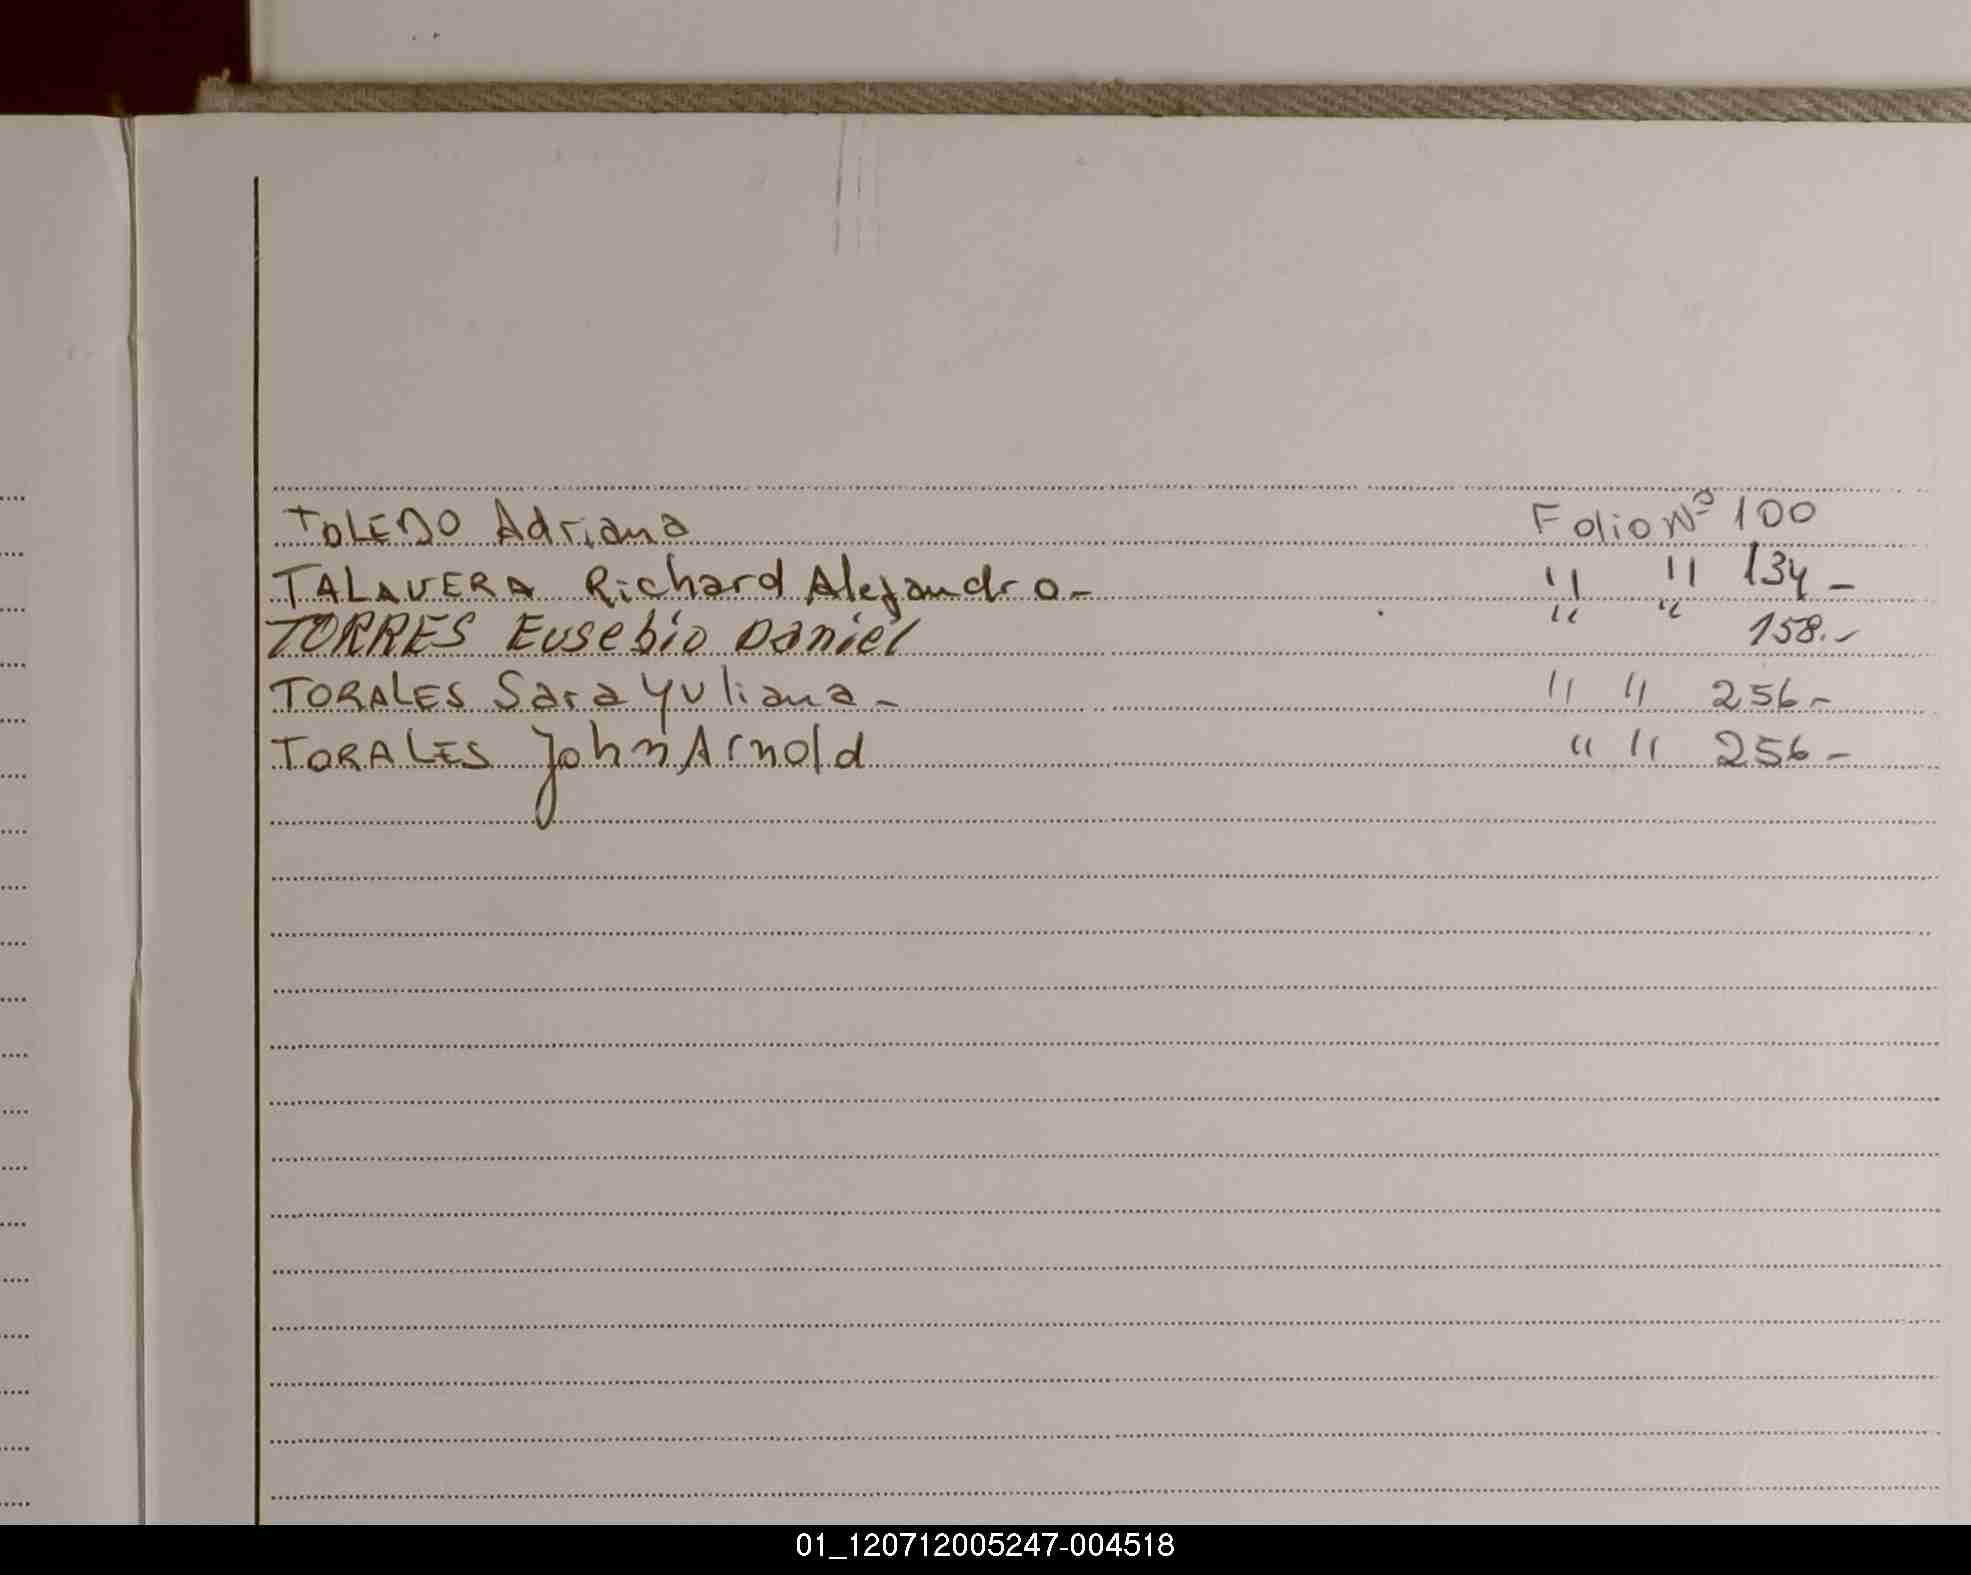 TOLEDO Adriana Folio Nº 100
TALAVERA Richard Alejandro- " " 134-
TORRES Eusebio Daniel " " 158.-
TORALES Sara Yuliana- " " 256-
TORALES John Arnold " " 256-
01_120712005247-004518